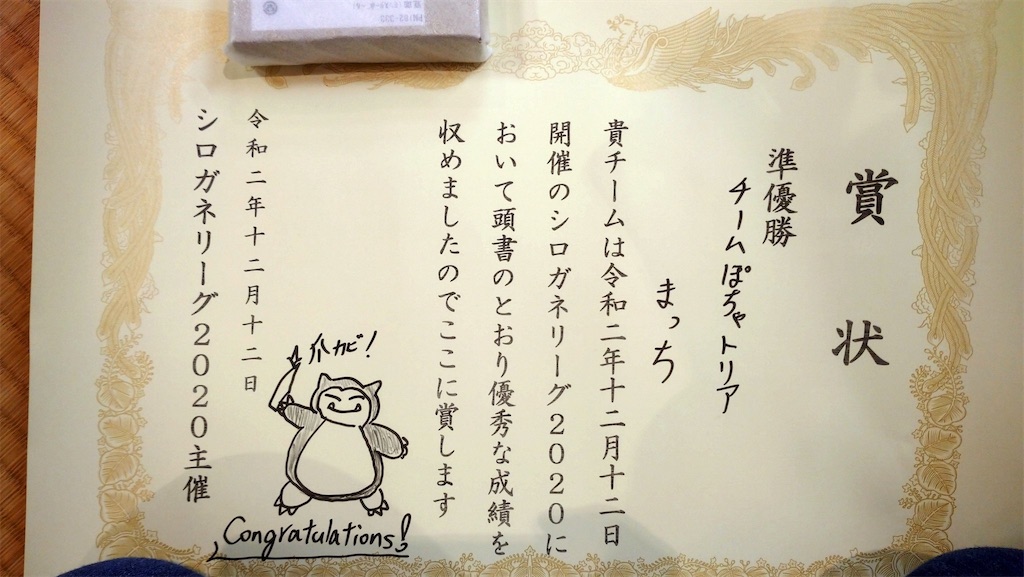 賞状
準優勝
チームぽちゃトリア
まっち
貴チームは令和二年十二月十二日
開催のシロガネリーグ2020に
おいて頭書のとおり優秀な成績を
収めましたのでここに賞します
令和二年十二月十二日
シロガネリーグ2020主催
爪カビ!
Congratulations!